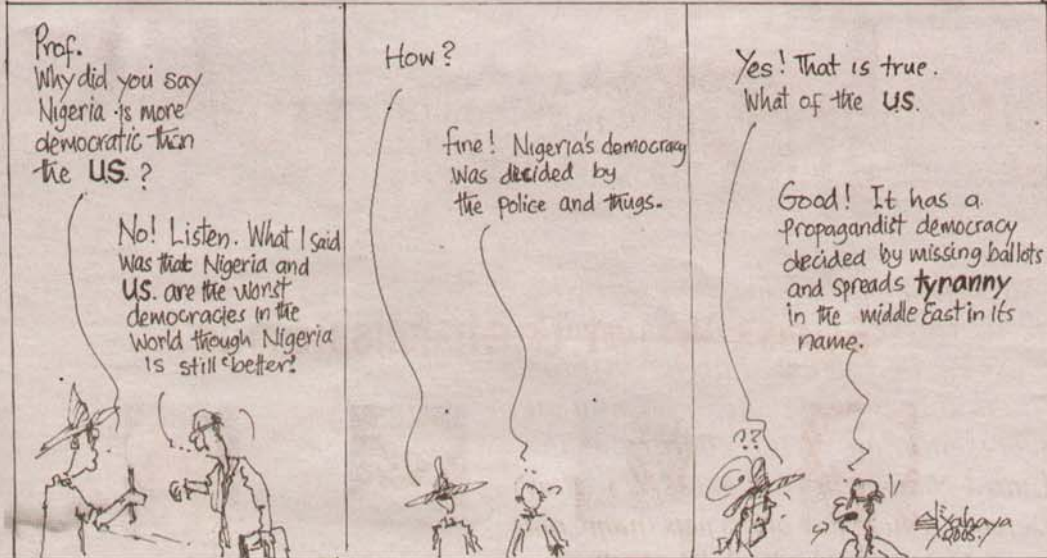 Prof.
Why did you say
Nigeria is more
democratic than
the US.?
No! Listen. What I said
was that Nigeria and
US. are the worst
democracies in the
world though Nigeria
is still better.
How?
fine! Nigeria's democracy
was decided by
the police and thugs.
Yes! That is true.
What of the US.
Good! It has a
propagandist democracy
decided by missing ballots
and spreads tyranny
in the middle East in its
name.
!??
Yahaya
2005.